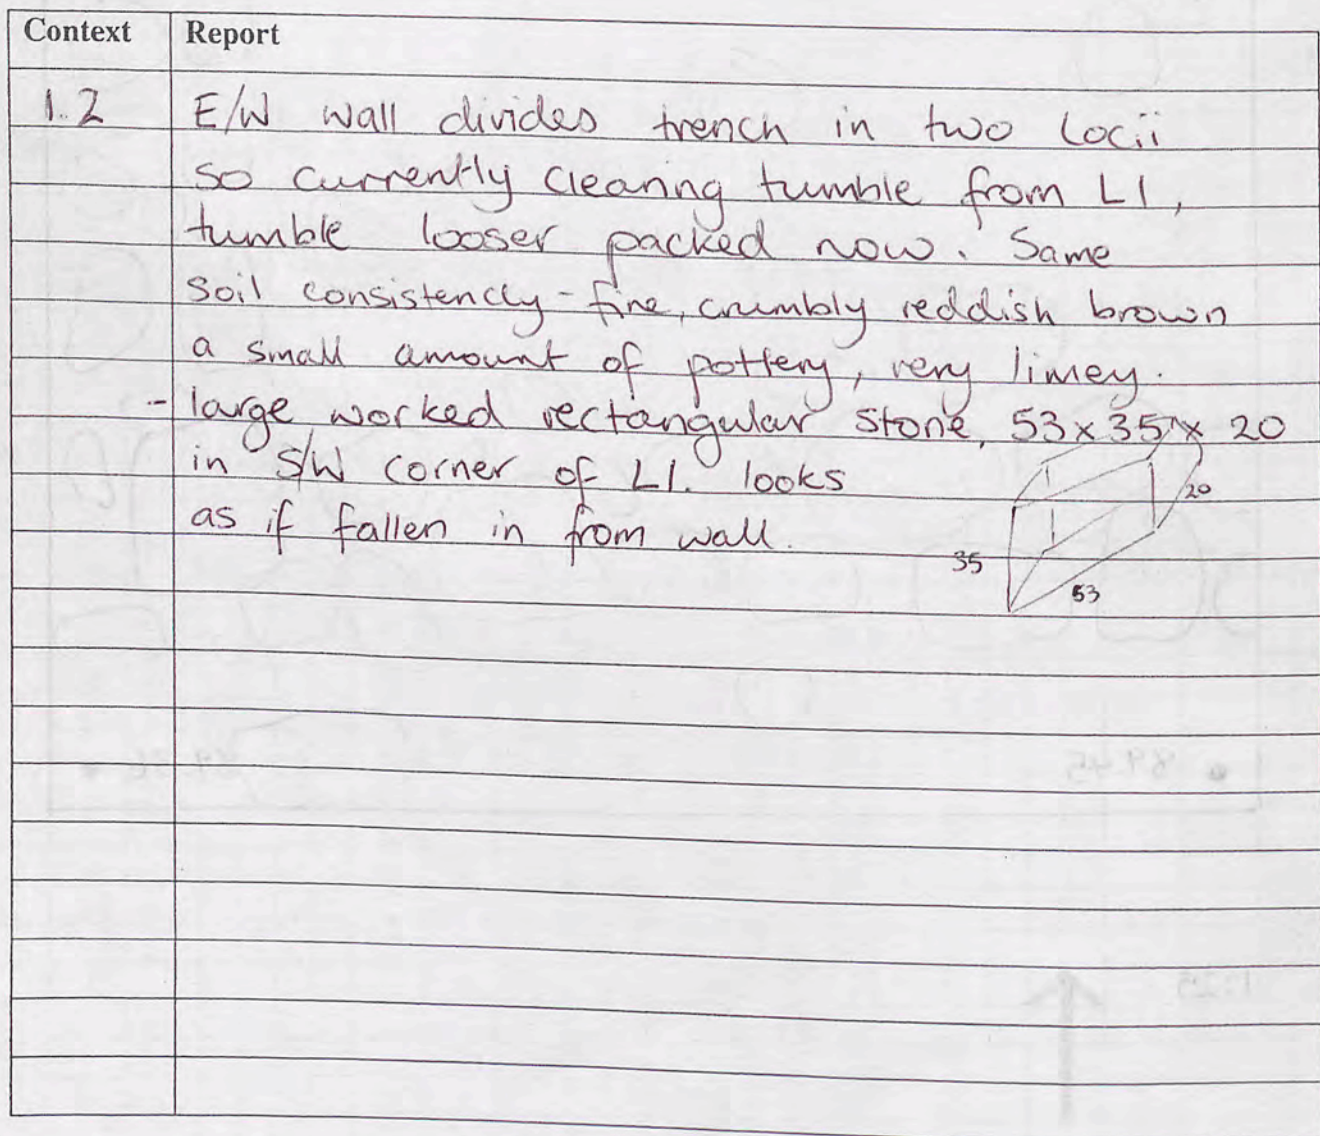 Context Report
1.2 E/W wall divides trench in two Locii
so currently clearing tumble from L1,
tumble looser packed now. Same
soil consistency - fine, crumbly reddish brown
a small amount of pottery, very limey.
- large worked rectangular stone, 53 x 35 x 20
in S/W corner of L1. looks
as if fallen in from wall.
20
35
53
89.45
1:25